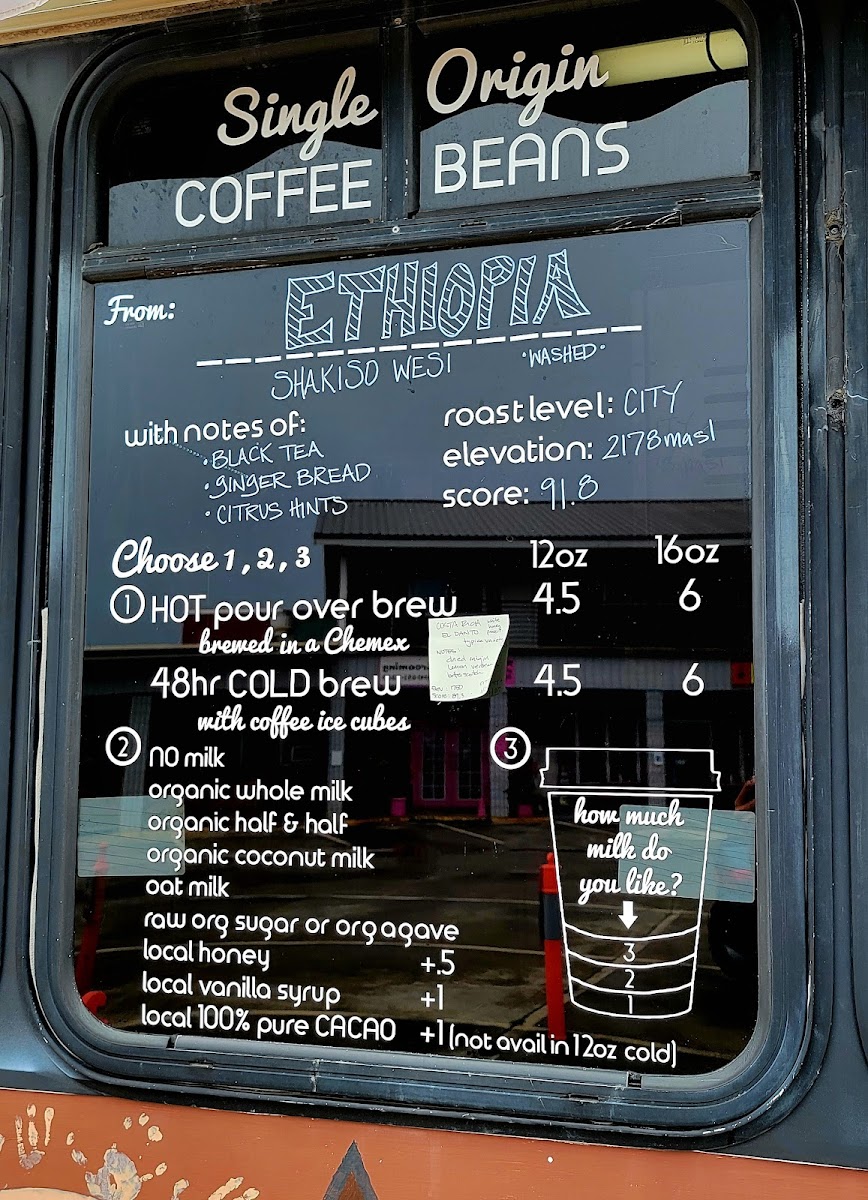 Single Origin
COFFEE BEANS
From: ETHIOPIA
SHAKISO WESI •WASHED•
with notes of:
•BLACK TEA
•GINGER BREAD
•CITRUS HINTS
roast level: CITY
elevation: 2178masl
score: 91.8
Choose 1, 2, 3 12oz 16oz
1 HOT pour over brew 4.5 6
brewed in a Chemex
48hr COLD brew 4.5 6
with coffee ice cubes
2 no milk
organic whole milk
organic half & half
organic coconut milk
oat milk
raw org sugar or org agave
local honey +.5
local vanilla syrup +1
local 100% pure CACAO +1 (not avail in 12oz cold)
3
how much
milk do
you like?
3
2
1
EL DANTO
NOTES: